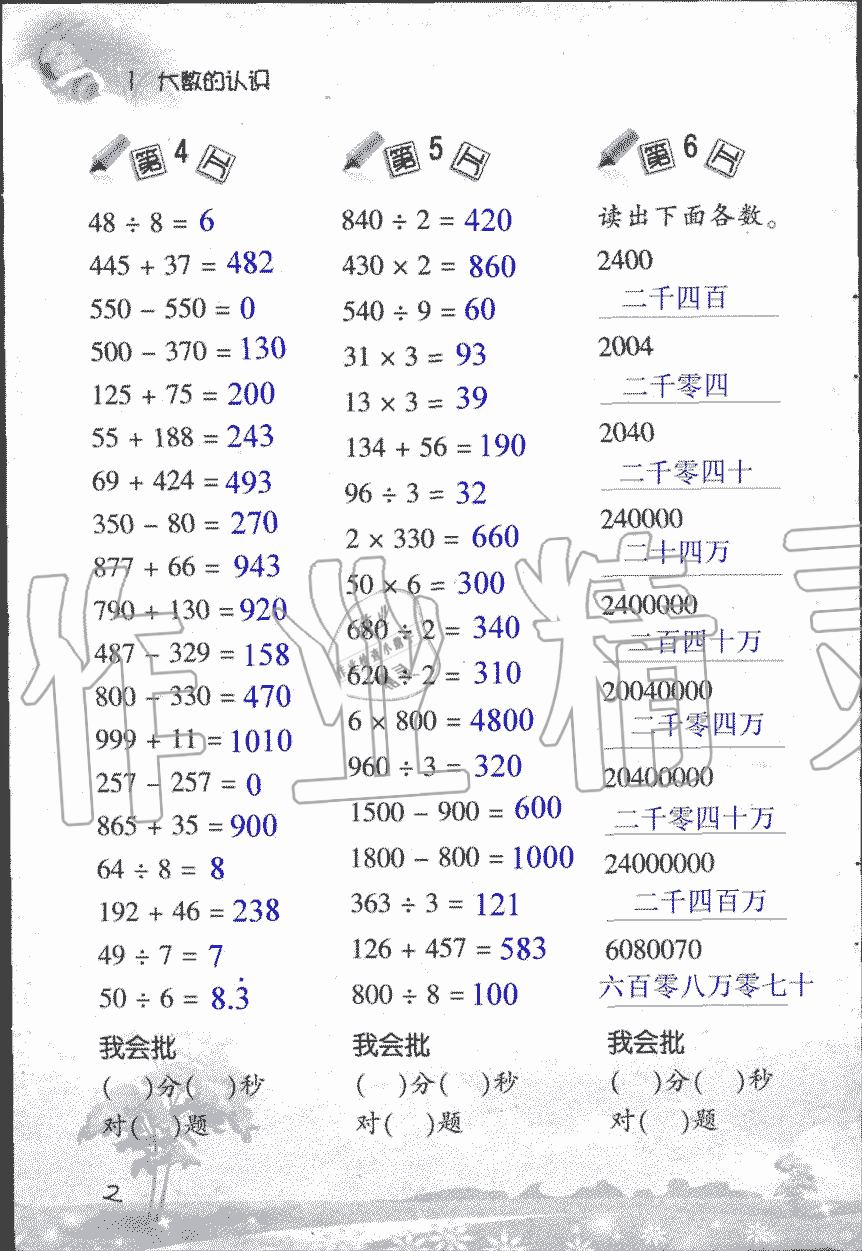 1 大数的认识
第4页
48 ÷ 8 = 6
445 + 37 = 482
550 − 550 = 0
500 − 370 = 130
125 + 75 = 200
55 + 188 = 243
69 + 424 = 493
350 − 80 = 270
877 + 66 = 943
790 + 130 = 920
487 − 329 = 158
800 − 330 = 470
999 + 11 = 1010
257 − 257 = 0
865 + 35 = 900
64 ÷ 8 = 8
192 + 46 = 238
49 ÷ 7 = 7
50 ÷ 6 = 8.3̇
我会批
( )分( )秒
对( )题
第5页
840 ÷ 2 = 420
430 × 2 = 860
540 ÷ 9 = 60
31 × 3 = 93
13 × 3 = 39
134 + 56 = 190
96 ÷ 3 = 32
2 × 330 = 660
50 × 6 = 300
680 ÷ 2 = 340
620 ÷ 2 = 310
6 × 800 = 4800
960 ÷ 3 = 320
1500 − 900 = 600
1800 − 800 = 1000
363 ÷ 3 = 121
126 + 457 = 583
800 ÷ 8 = 100
我会批
( )分( )秒
对( )题
第6页
读出下面各数。
2400
二千四百
2004
二千零四
2040
二千零四十
240000
二十四万
2400000
二百四十万
20040000
二千零四万
20400000
二千零四十万
24000000
二千四百万
6080070
六百零八万零七十
我会批
( )分( )秒
对( )题
2
作业精灵